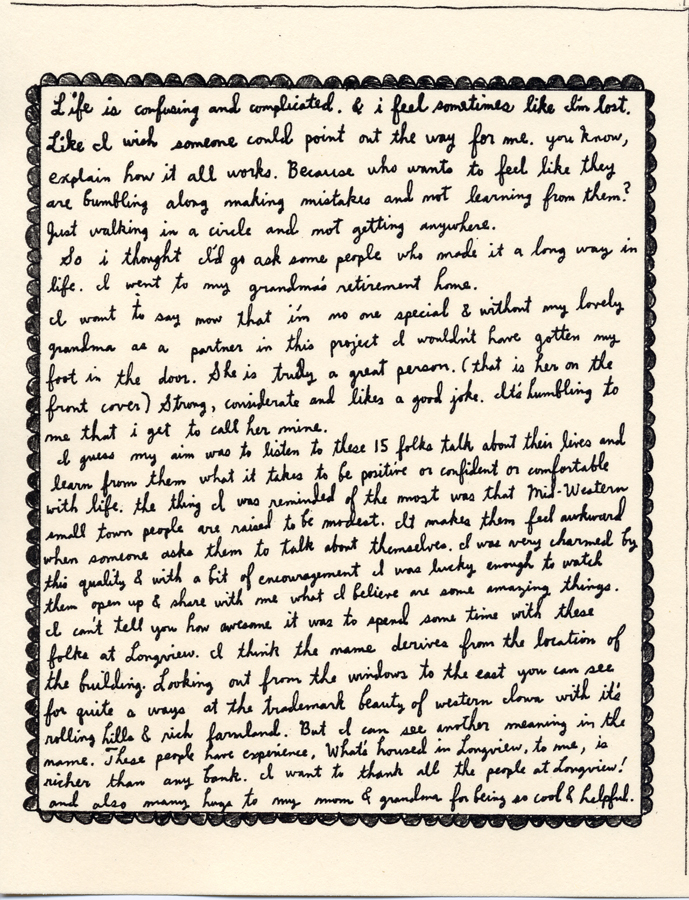 Life is confusing and complicated. & i feel sometimes like I'm lost.
Like I wish someone could point out the way for me. you know,
explain how it all works. Because who wants to feel like they
are bumbling along making mistakes and not learning from them?
Just walking in a circle and not getting anywhere.
So i thought I'd go ask some people who made it a long way in
life. I went to my grandma's retirement home.
I want to say now that i'm no one special & without my lovely
grandma as a partner in this project I wouldn't have gotten my
foot in the door. She is truly a great person. (that is her on the
front cover) Strong, considerate and likes a good joke. It's humbling to
me that i get to call her mine.
I guess my aim was to listen to these 15 folks talk about their lives and
learn from them what it takes to be positive or confident or comfortable
with life. the thing I was reminded of the most was that Mid-Western
small town people are raised to be modest. It makes them feel awkward
when someone asks them to talk about themselves. I was very charmed by
this quality & with a bit of encouragement I was lucky enough to watch
them open up & share with me what I believe are some amazing things.
I can't tell you how awesome it was to spend some time with these
folks at Longview. I think the name derives from the location of
the building. Looking out from the windows to the east you can see
for quite a ways at the trademark beauty of western Iowa with it's
rolling hills & rich farmland. But I can see another meaning in the
name. These people have experience, What's housed in Longview, to me, is
richer than any bank. I want to thank all the people at Longview!
and also many hugs to my mom & grandma for being so cool & helpful.